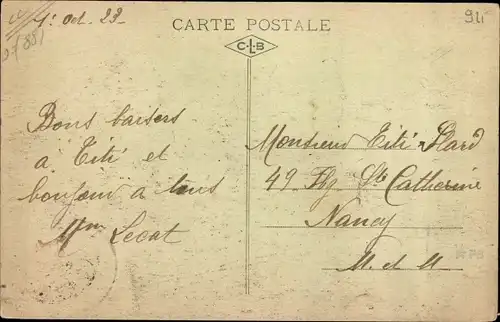 1: Oct. 23
CARTE POSTALE
94
CLB
Bons baisers
à Titi et
bonjour a tous
Mme Lecat
Monsieur Titi Plard
49 Fbg Ste Catherine
Nancy
M. et M